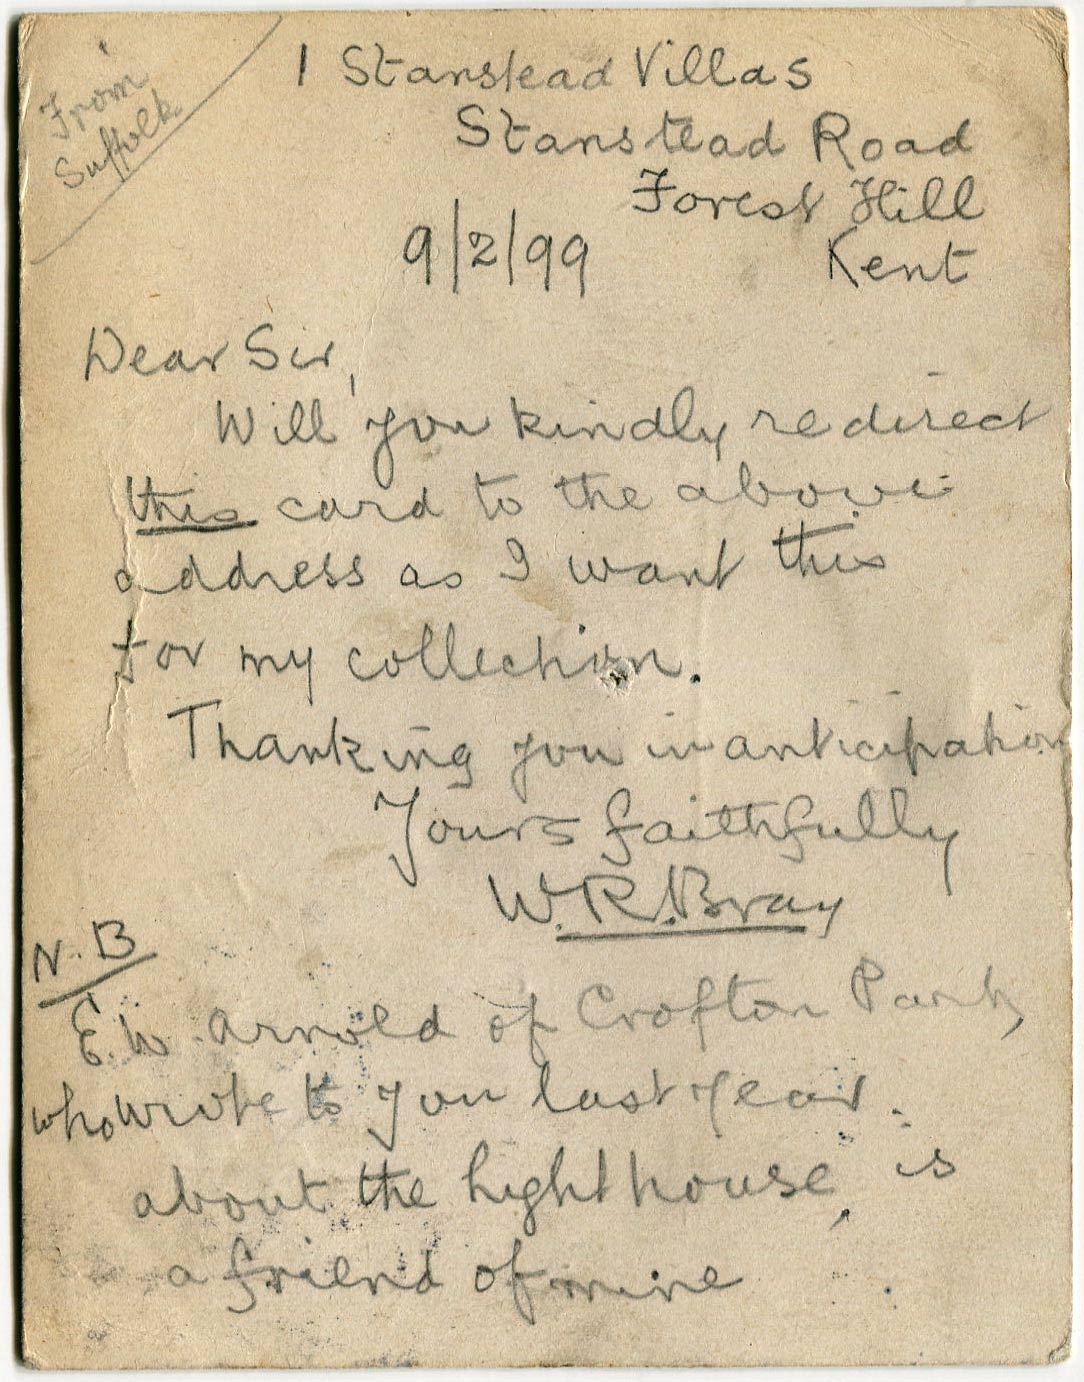 From
Suffolk
1 Stanstead Villas
Stanstead Road
Forest Hill
9/2/99 Kent
Dear Sir,
Will you kindly redirect
this card to the above
address as I want this
for my collection.
Thanking you in anticipation
Yours faithfully
W. R. Bray
N.B
E.W. Arnold of Crofton Park,
who wrote to you last year.
about the lighthouse, is
a friend of mine